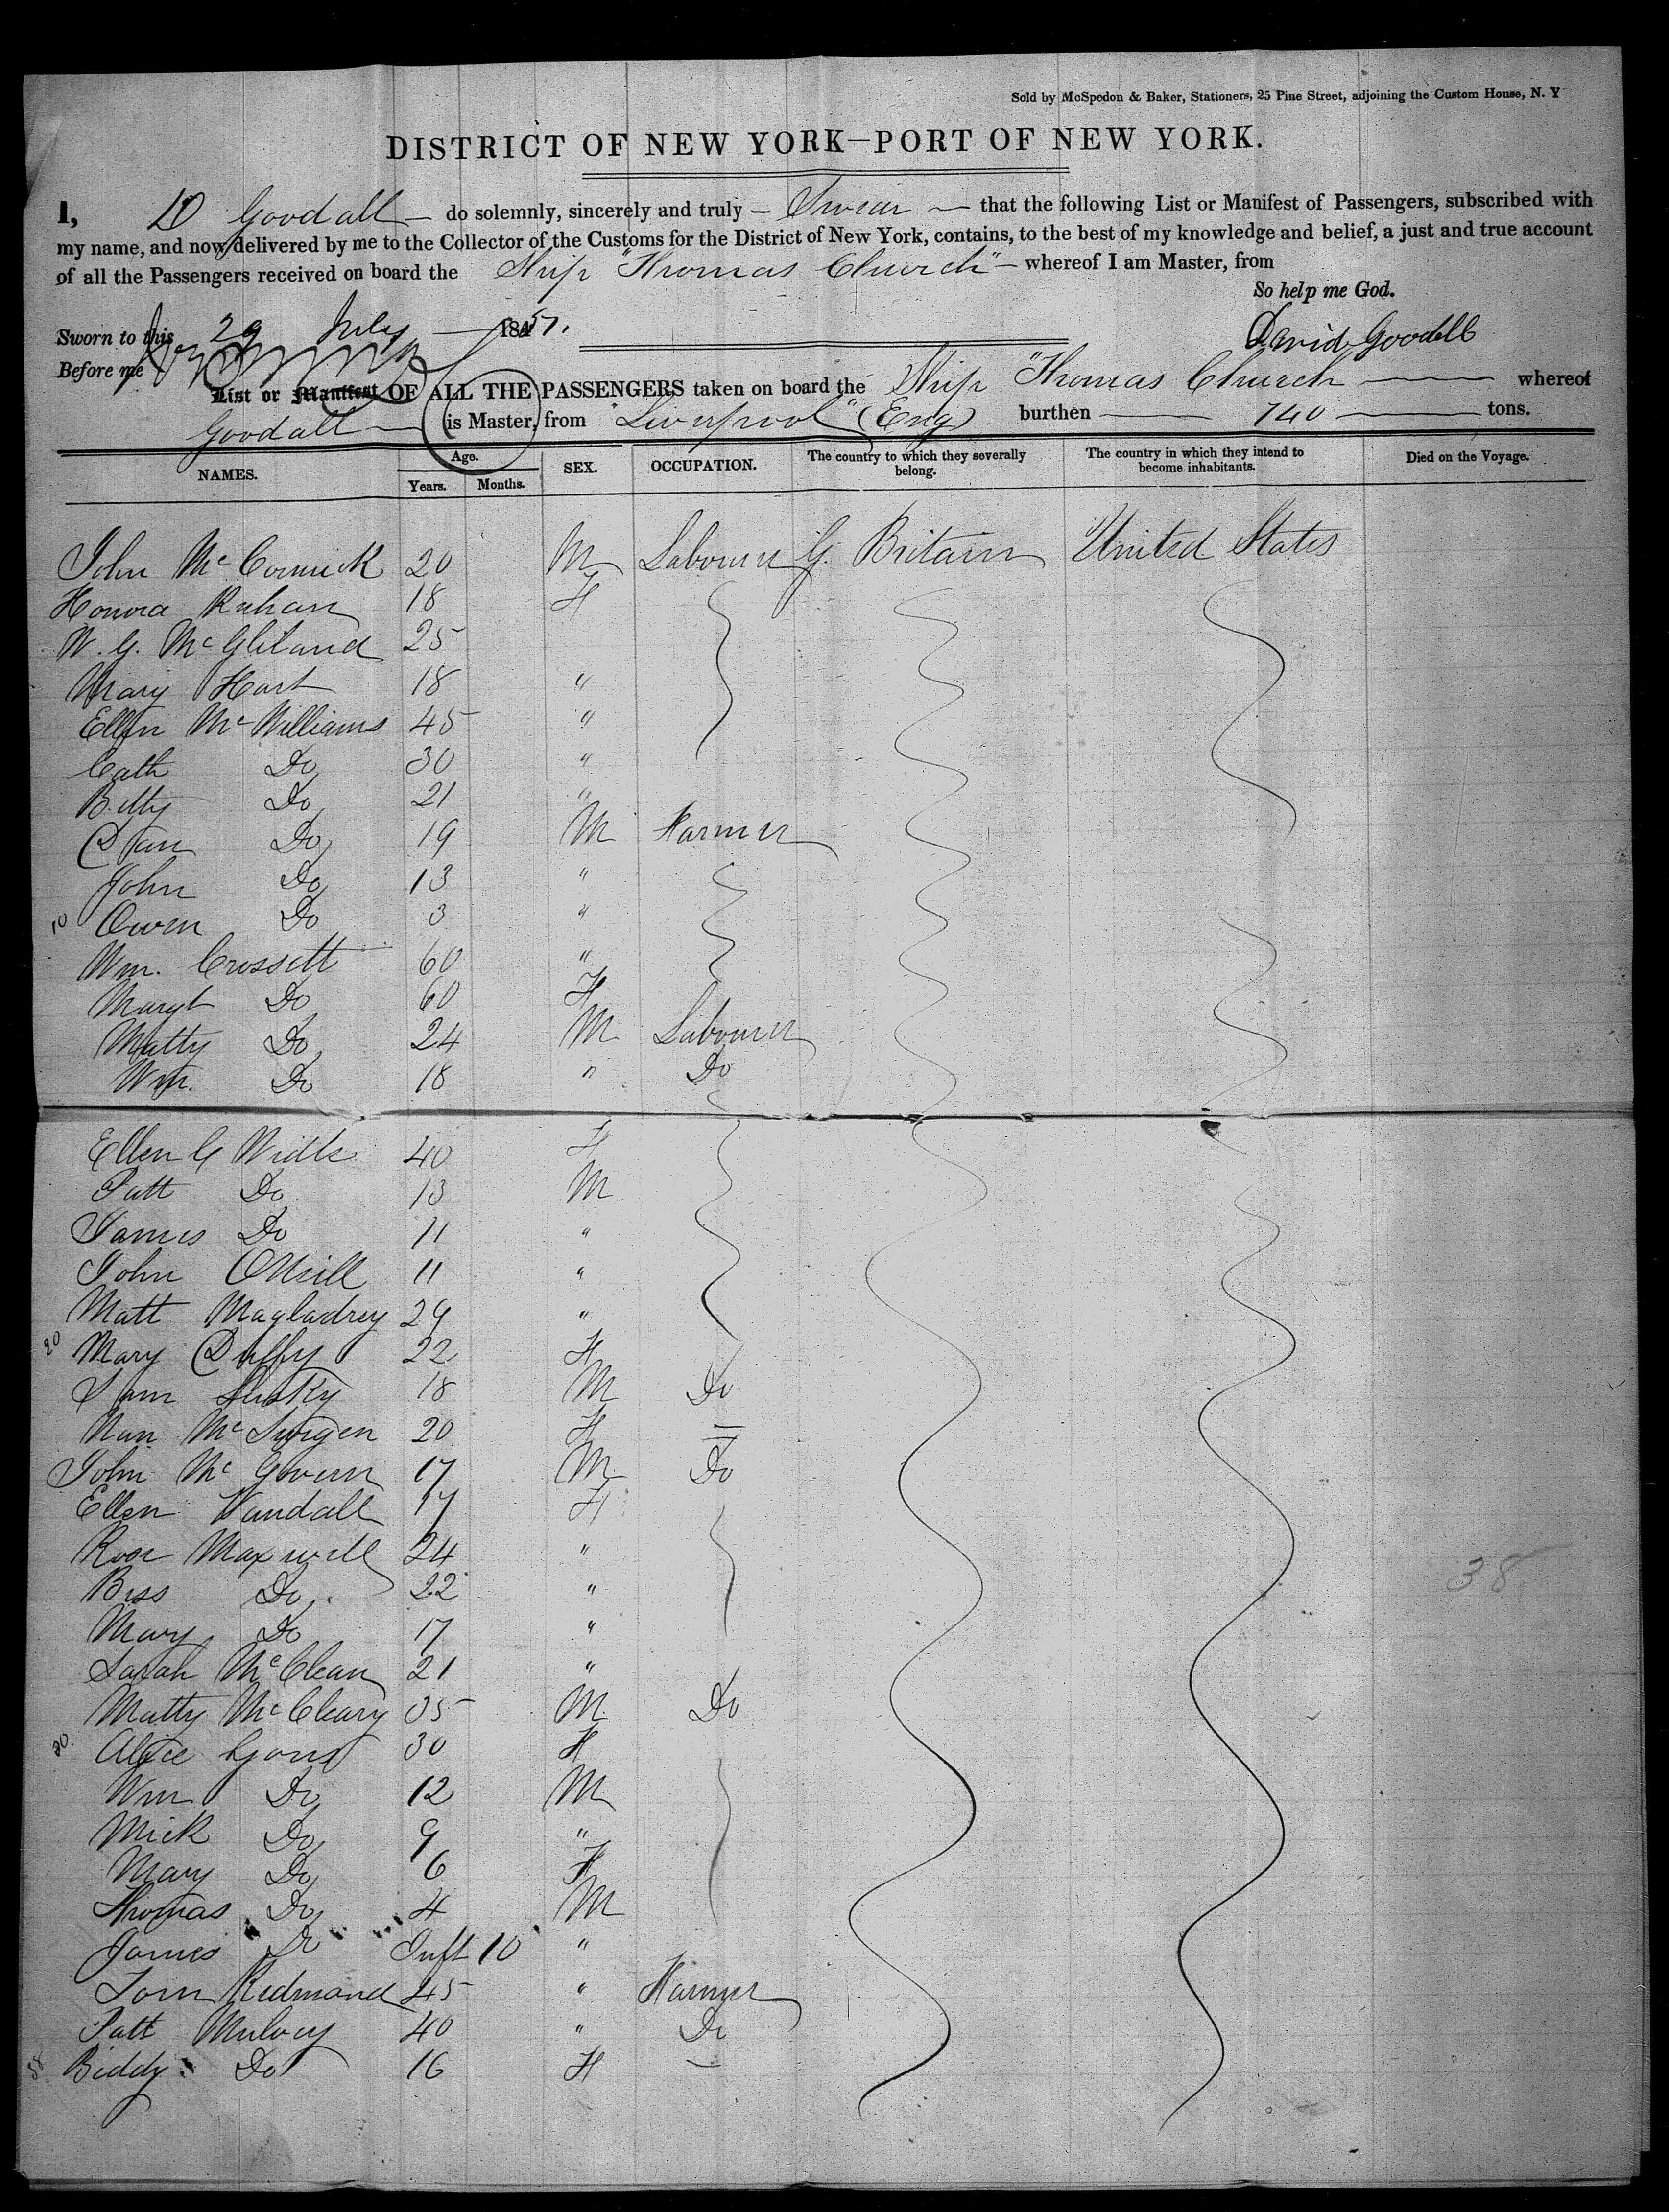 Sold by McSpedon & Baker, Stationers, 25 Pine Street, adjoining the Custom House, N. Y
DISTRICT OF NEW YORK—PORT OF NEW YORK.
I, D Goodall — do solemnly, sincerely and truly — Swear — that the following List or Manifest of Passengers, subscribed with
my name, and now delivered by me to the Collector of the Customs for the District of New York, contains, to the best of my knowledge and belief, a just and true account
of all the Passengers received on board the Ship "Thomas Church" — whereof I am Master, from
So help me God.
Sworn to this 29 July 1851.
David Goodall
Before me
List or Manifest OF ALL THE PASSENGERS taken on board the Ship "Thomas Church" — whereof
Goodall — is Master, from "Liverpool" (Eng) burthen — 740 — tons.
NAMES. Age. Years. Months. SEX. OCCUPATION. The country to which they severally belong. The country in which they intend to become inhabitants. Died on the Voyage.
John McCormick 20 M Labourer G. Britain United States
Honora 18 F
W. G. 25
Mary Hart 18 "
Ellen McWilliams 45 "
Cath Do 30 "
Betty Do 21 "
Dan Do 19 M Farmer
John Do 13 "
10 Owen Do 3 "
Wm. Crossett 60 "
Margt Do 60 F
Matty Do 24 M Labourer
Wm. Do 18 " Do
Ellen 40 F
Patt Do 13 M
James Do 11 "
John ONeill 11 "
Matt 29 "
20 Mary Duffy 22 F
Sam 18 M Do
Nan McSwigen 20 F —
John McGovern 17 M Do
Ellen 17 F
Rose Maxwell 24 "
Bess Do 22 "
Mary Do 17 "
Sarah McClean 21 "
38
Matty McCleary 35 M Do
30 Alice 30 F
Wm Do 12 M
Mick Do 9 "
Mary Do 6 F
Thomas Do 4 M
James Do Inft 10 "
Tom Redmond 45 " Farmer
Patt Mulvey 40 " Do
38 Biddy Do 16 F —